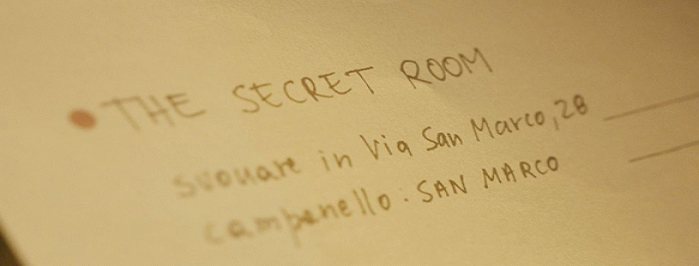 THE SECRET ROOM
suonare in Via San Marco, 28
campanello: SAN MARCO